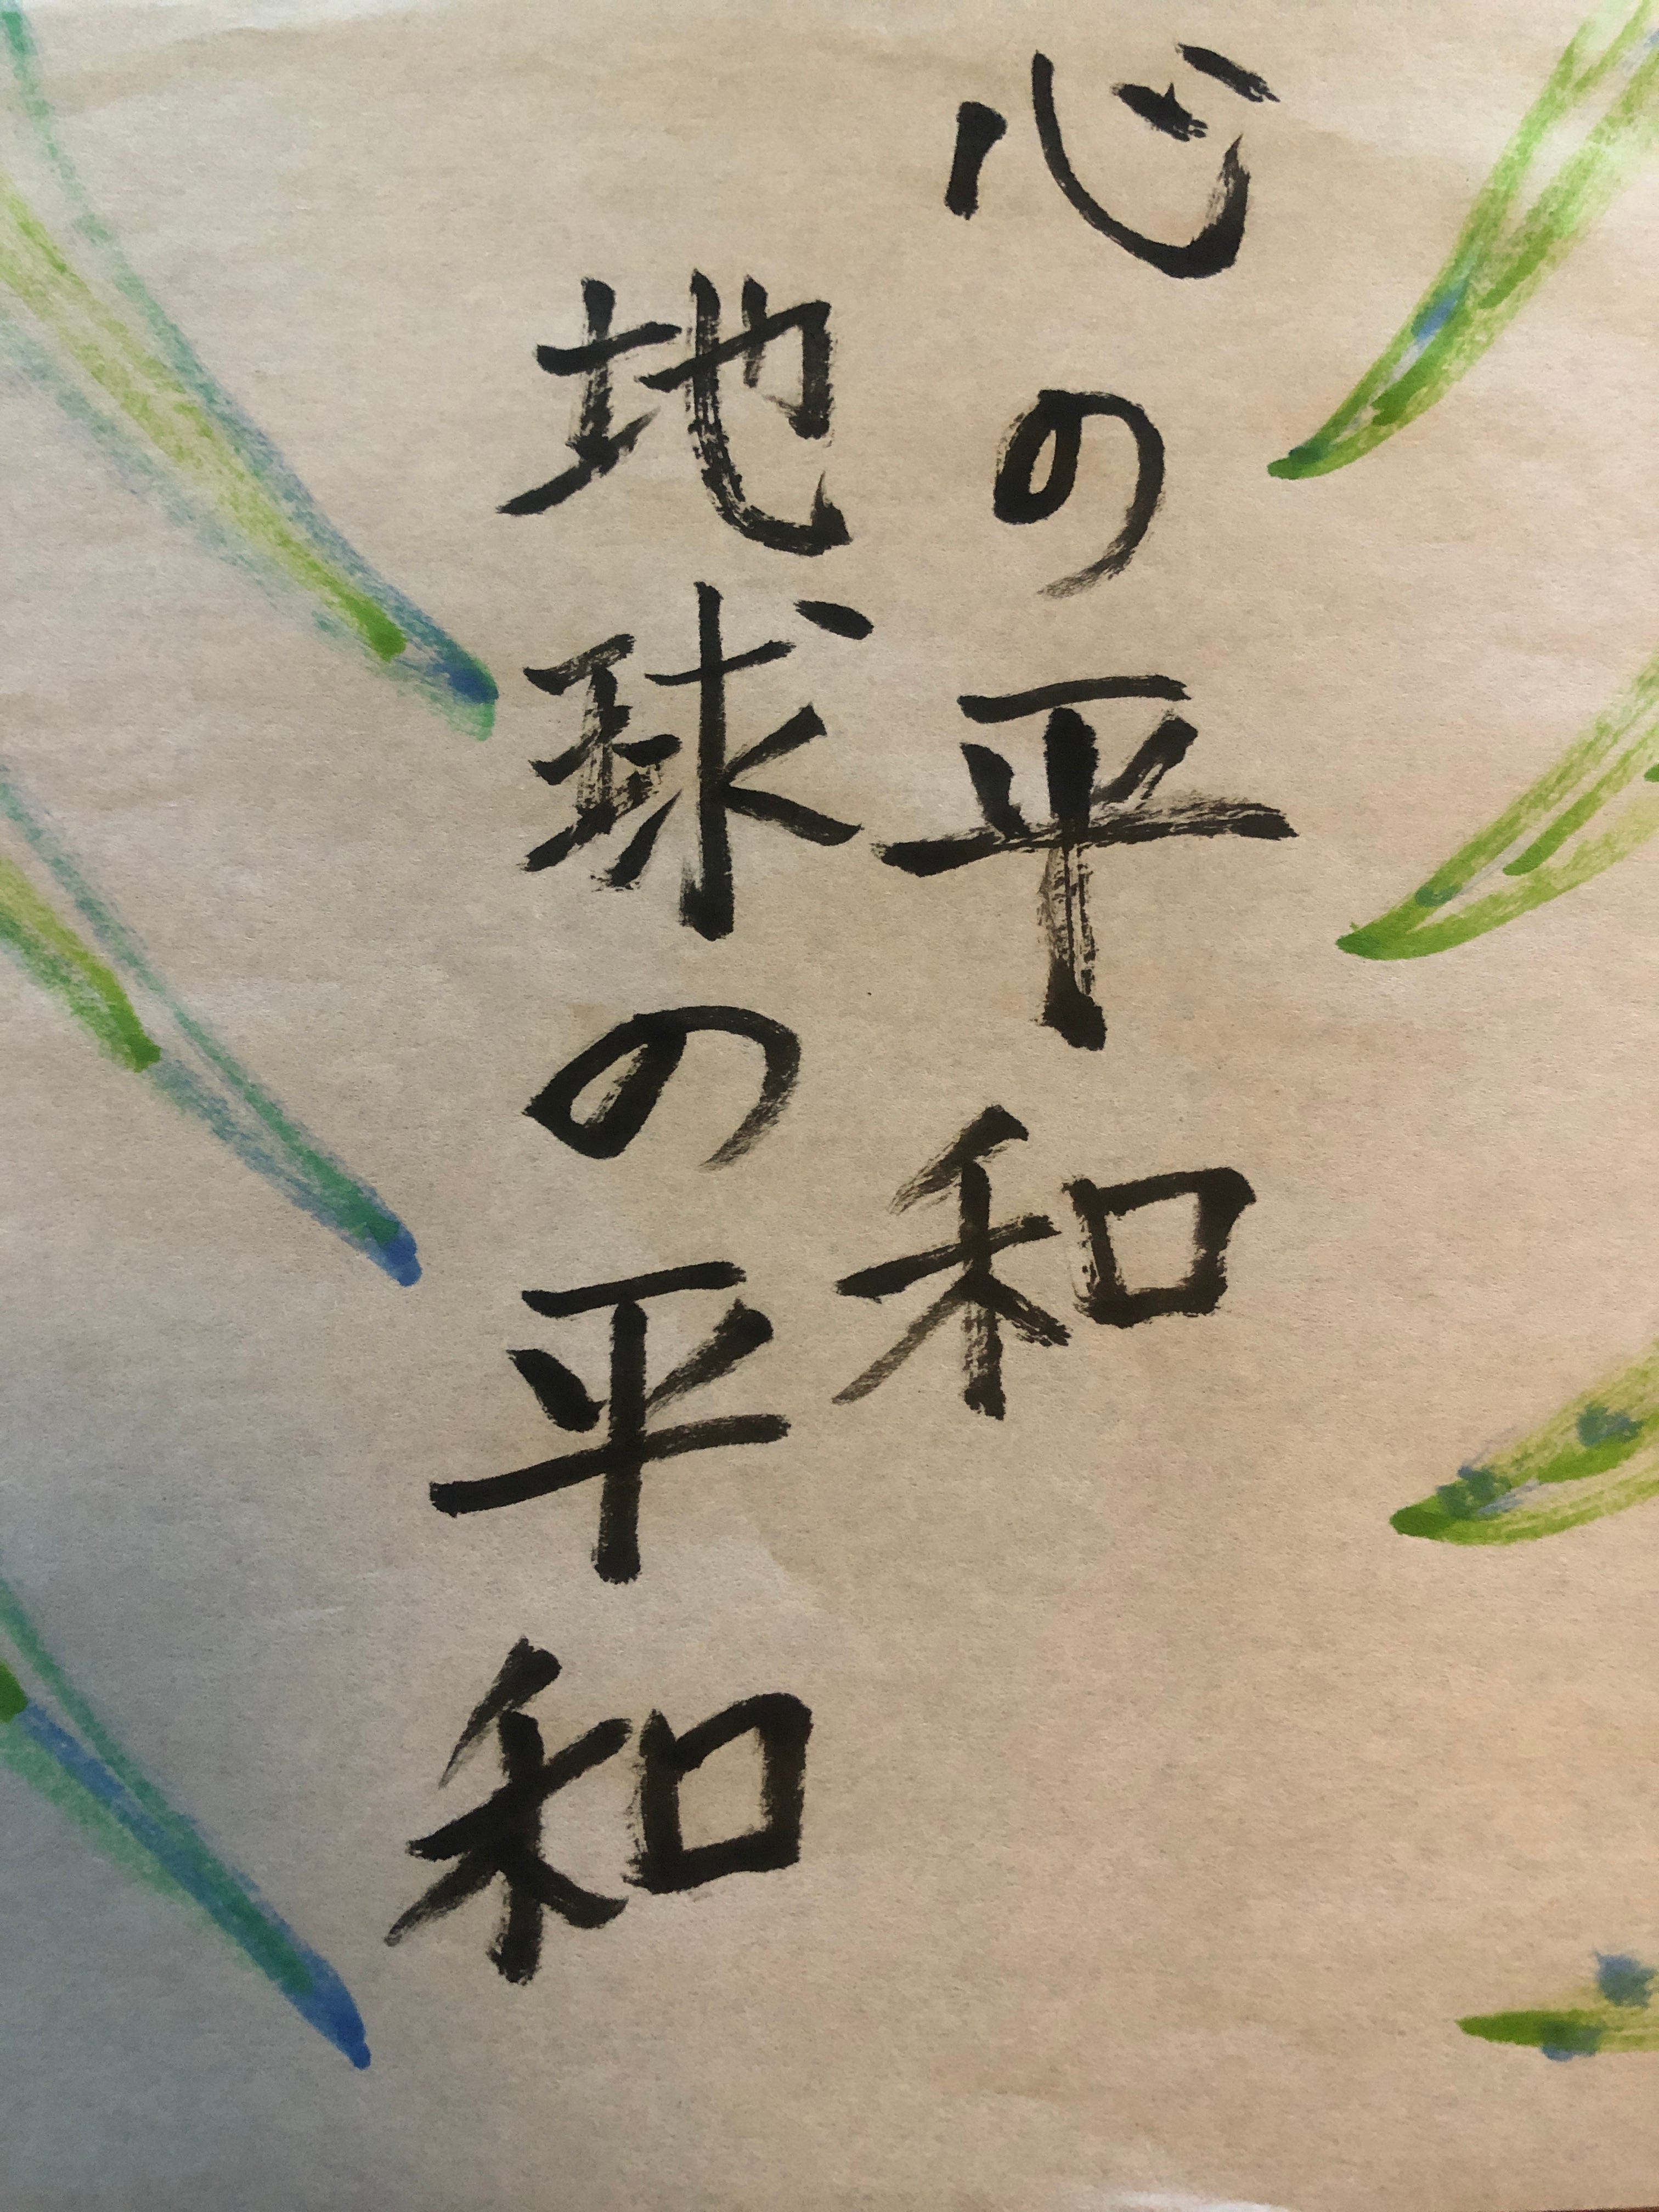 心の平和
地球の平和